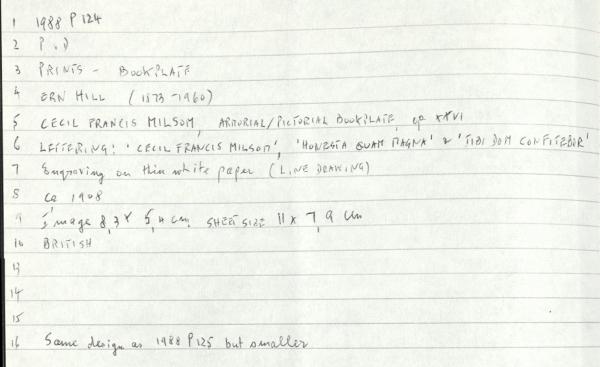 1 1988 P 124
2 P.D
3 PRINTS - BOOKPLATE
4 ERN HILL (1873-1960)
5 CECIL FRANCIS MILSOM, ARMORIAL/PICTORIAL BOOKPLATE, op XXVI
6 LETTERING: 'CECIL FRANCIS MILSOM', 'HONESTA QUAM MAGNA' & 'TIBI DOM CONFITEBOR'
7 Engraving on thin white paper (LINE DRAWING)
8 ca 1908
9 image 8,3 x 5,4 cm, SHEET SIZE 11 x 7,9 cm
10 BRITISH
13
14
15
16 Same design as 1988 P125 but smaller